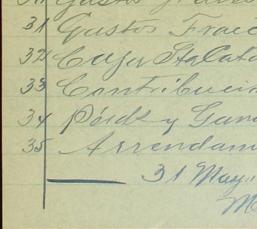 31 Gustos Frac
32 Caja Sta Cata
33 Contribucio
34 Pérd y Gan
35 Arrendam
31 May